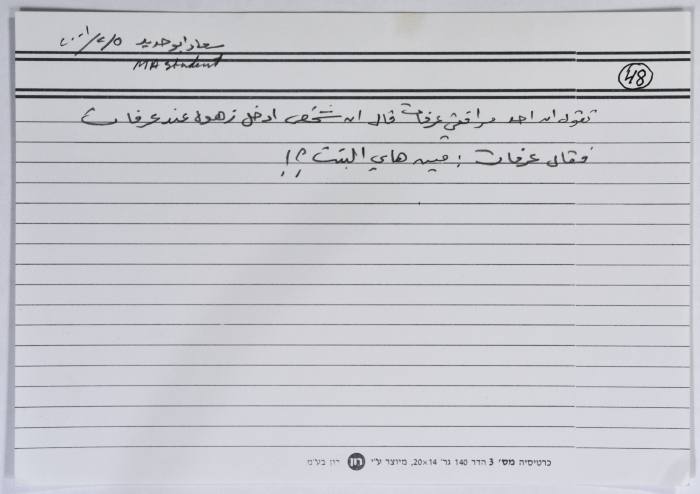 سعاد ابو حديد
MA Student
48
تقول ان احد مرافقي عرفات قال ان شخص ادخل زهوه عند عرفات
فقال عرفات : مين هاي البنت ؟!
כרטיסיה מס׳ 3 הדר 140 גר׳ 14×20, מיוצר ע״י רון רון בע״מ